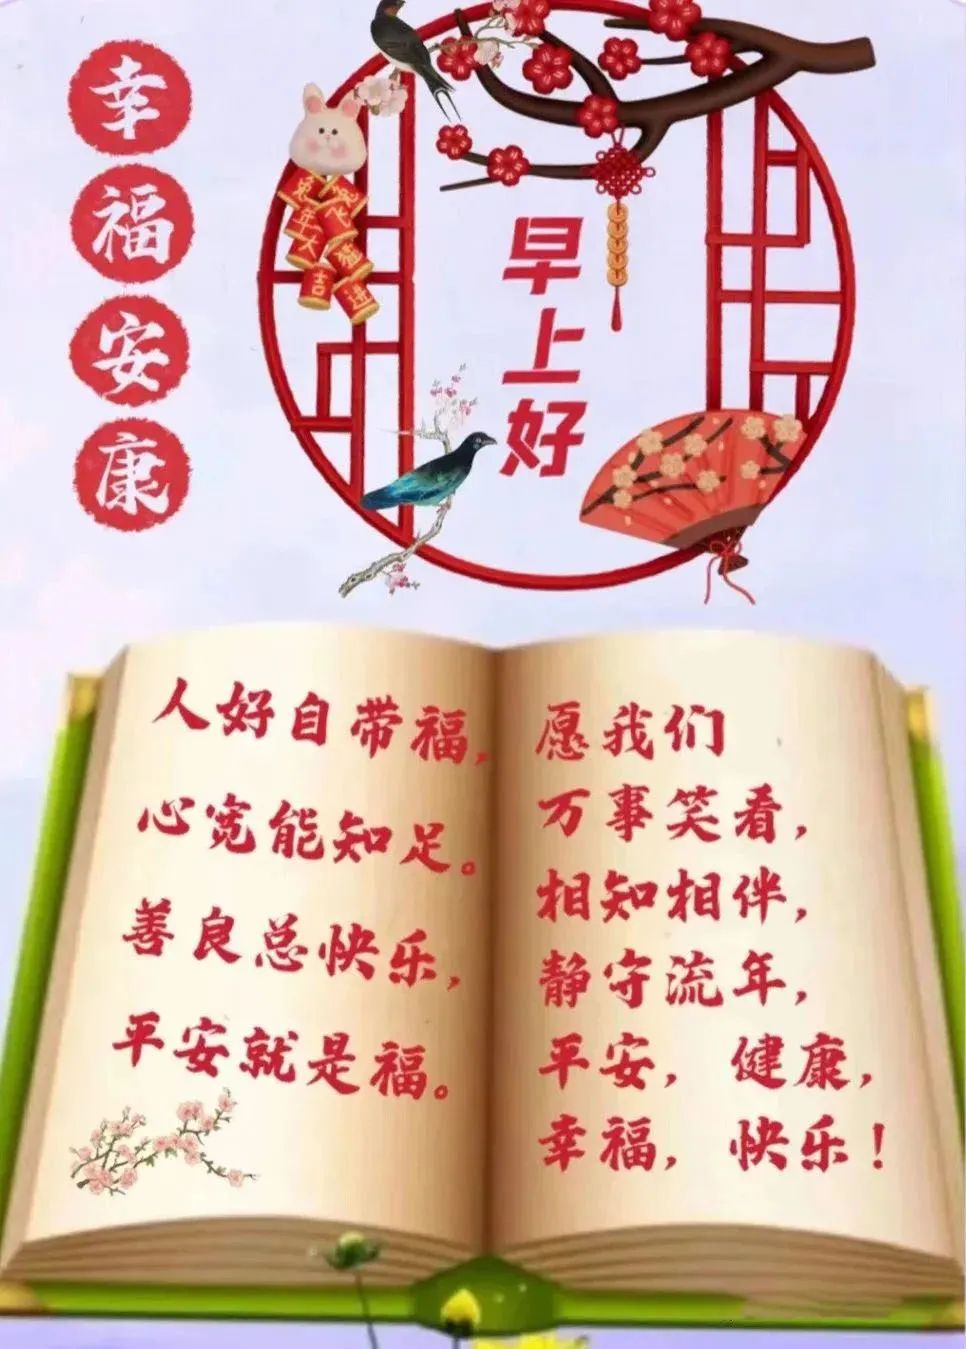 幸福安康
兔年大吉
早上好
人好自带福，
心宽能知足。
善良总快乐，
平安就是福。
愿我们
万事笑看，
相知相伴，
静守流年，
平安，健康，
幸福，快乐！